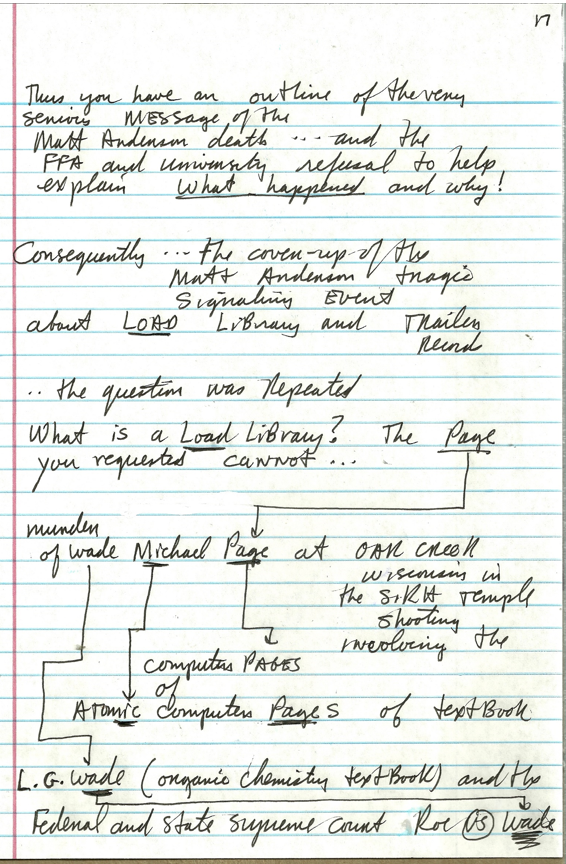 17
Thus you have an outline of the very
serious MESSage of the
Matt Anderson death ... and the
FFA and university refusal to help
explain What happened and why!
Consequently ... The cover-up of the
Matt Anderson tragic
Signaling Event
about LOAD LiBrary and Trailer
Record
.. the question was Repeated
What is a Load LiBrary? The Page
you requested cannot ...
murder
of wade Michael Page at OAK CREEK
wisconsin in
the SiKH temple
shooting
involving the
computer PAGES
of
Atomic computer Page s of textBook
L.G. Wade (organic chemistry textBook) and the
Federal and state supreme court Roe VS Wade